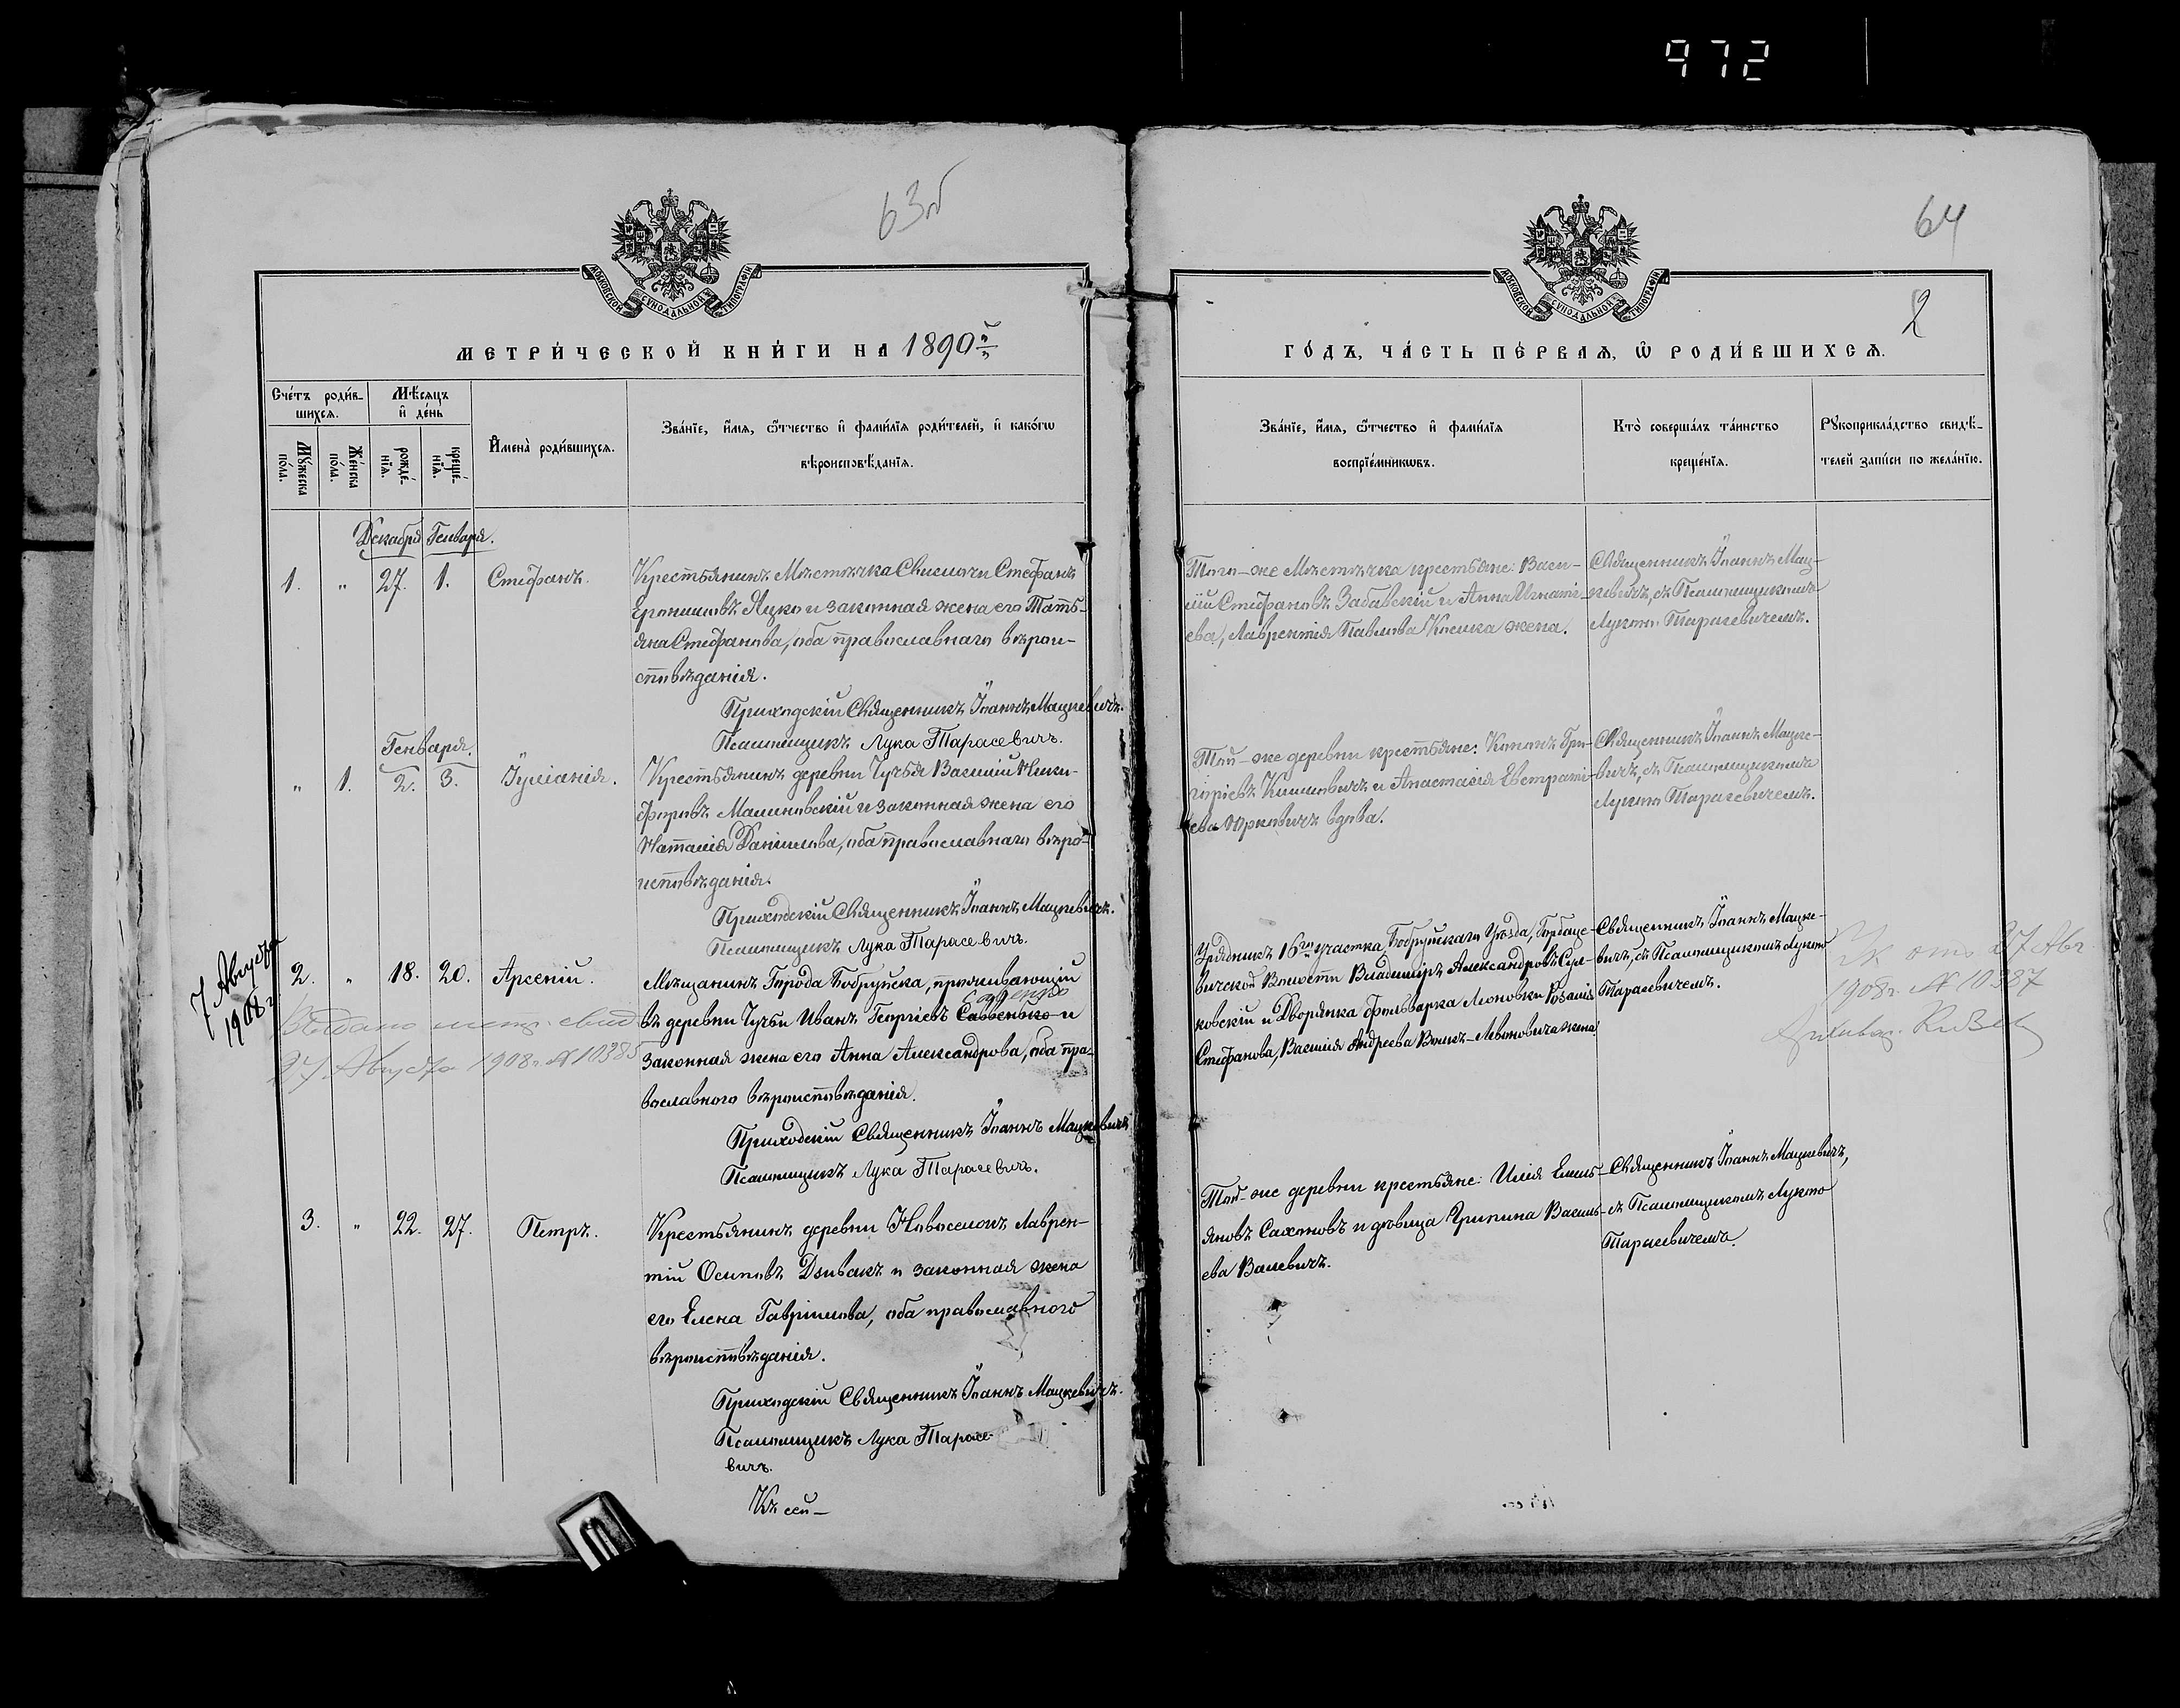 972
63об
64
2
МОСКОВСКОЙ СѴНОДАЛЬНОЙ ТИПОГРАФІИ
МЕТРИ́ЧЕСКОЙ КНИ́ГИ НА 1890й
Сче́тъ роди́в-
шихсѧ.
Мѣ́сѧцъ
и҆ де́нь
Мꙋ́жеска
по́ла.
Же́нска
по́ла.
рожде́-
нїѧ.
креще́-
нїѧ.
И҆мена̀ роди́вшихсѧ.
Зва́нїе, и҆́мѧ, ѻ҆́тчество и҆ фами́лїѧ роди́телей, и҆ како́гѡ
вѣроисповѣ́данїѧ.
Декабря Генваря.
1. " 27. 1. Стефанъ.
Крестьянинъ Мѣстечка Свислочи Стефанъ
Еронимовъ Яцко и законная жена его Тать-
яна Стефанова, оба православнаго вѣрои-
споведанія.
Приходскій Священникъ Іоаннъ Мацкевичъ.
Псаломщикъ Лука Тарасевичъ.
Генваря.
" 1. 2. 3. Іуліанія.
Крестьянинъ деревни Чучья Василій Ники-
форовъ Малиновскій и законная жена его
Наталія Даніилова, оба православнаго вѣро-
исповѣданія.
Приходскій Священникъ Іоаннъ Мацкевичъ.
Псаломщикъ Лука Тарасевичъ.
7 Августа
1908 г
2. " 18. 20. Арсеній.
Мѣщанинъ Города Бобруйска, проживающій
въ деревни Чучьи Иванъ Георгіевъ Савенько и
законная жена его Анна Александрова, оба пра-
вославного вѣроисповѣданія.
Выдано метр. свид
27 Августа 1908 г. № 10385
Приходскій Священникъ Іоаннъ Мацкевичъ
Псаломщикъ Лука Тарасевичъ.
3. " 22. 27. Петръ.
Крестьянинъ деревни Новоселокъ Лаврен-
тій Осиповъ Дзивакъ и законная жена
его Елена Гавріилова, оба православного
вѣроисповѣданія.
Приходскій Священникъ Іоаннъ Мацкевичъ.
Псаломщикъ Лука Тарасе-
вичъ.
Къ сей-
МОСКОВСКОЙ СѴНОДАЛЬНОЙ ТИПОГРАФІИ
ГО́ДЪ, ЧА́СТЬ ПЕ́РВАѦ, Ѡ҆ РОДИ́ВШИХСѦ.
Зва́нїе, и҆́мѧ, ѻ҆́тчество и҆ фами́лїѧ
воспрїе́мникѡвъ.
Кто̀ соверша́лъ та́инство
креще́нїѧ.
Рꙋкоприкла́дство свидѣ́-
телей за́писи по жела́нїю.
Того-же Мѣстечка крестьяне: Васи-
лій Стефановъ Забавскій и Анна Игнаті-
ева, Лаврентія Павлова Кошка жена.
Священникъ Іоаннъ Мац-
кевичъ, съ Псаломщикомъ
Лукою Тарасевичемъ.
Той-же деревни крестьяне: Кононъ Гри-
горіевъ Климовичъ и Анастасія Евстраті-
ева Юрковичъ вдова.
Священникъ Іоаннъ Мацке-
вичъ, съ Псаломщикомъ
Лукою Тарасевичемъ.
Урядникъ 16го участка Бобруйскаго Уѣзда, Горбаце-
вичской Волости Владиміръ Александровъ
и Дворянка фольварка Розалія
Стефанова, Василія Андреева жена.
Священникъ Іоаннъ Мацке-
вичъ, съ Псаломщикомъ Лукою
Тарасевичемъ.
от 27 Авг
1908 г. № 10387
Той-же деревни крестьяне: Илія Емель-
яновъ Сахоновъ и дѣвица Грипина Василь-
ева Валевичъ.
Священникъ Іоаннъ Мацкевичъ,
съ Псаломщикомъ Лукою
Тарасевичемъ.